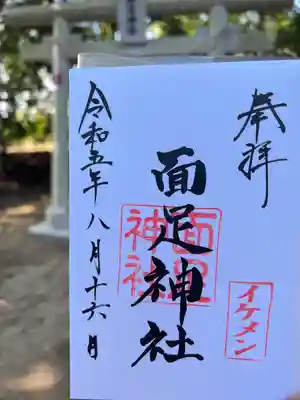 奉拝
面足神社
面足神社
イケメン
令和五年八月十六日